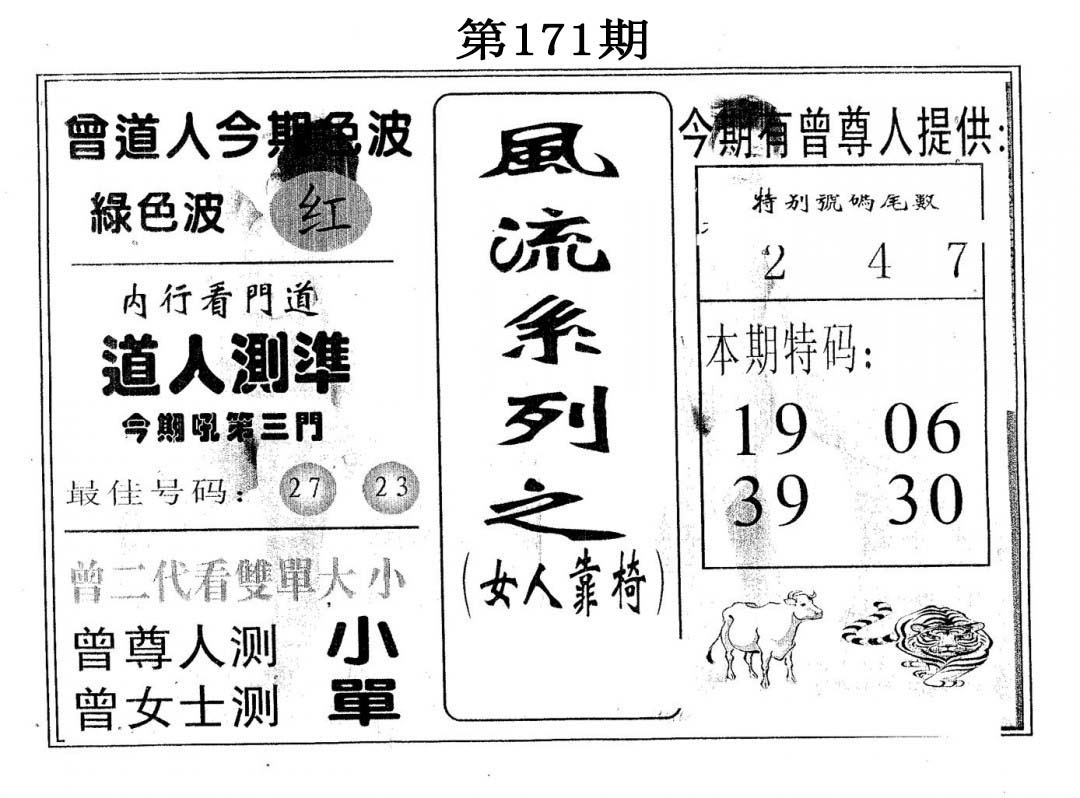 第171期
曾道人今期色波
綠色波 红
内行看門道
道人測準
今期吼第三門
最佳号码： 27 23
曾二代看雙單大小
曾尊人测 小
曾女士测 單
風
流
系
列
之
（女人靠椅）
今期有曾尊人提供：
特别號碼尾數
2 4 7
本期特码：
19 06
39 30